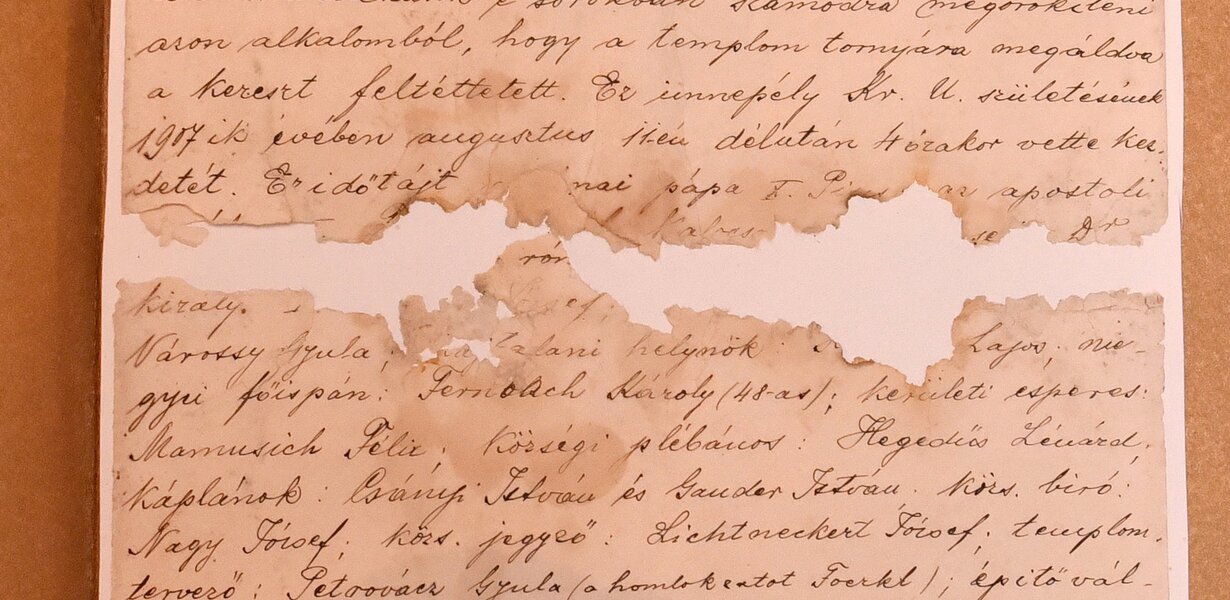 sorokban számodra megörökíteni
azon alkalomból, hogy a templom tornyára megáldva
a kereszt feltéttetett. Ez ünnepély Kr. U. születésének
1907 ik évében augusztus 11-én délután 4 órakor vette kez-
detét. Ez időtájt nai pápa X. Pi az apostoli
se Dr
rón
király. József;
Várossy Gyula; helynök: Lajos; me-
gyei főispán: Fernbach Károly (48-as); kerületi esperes:
Mamusich Félix; Községi plébános: Hegedüs Lénárd;
Káplánok: Csányi István és Gauder István. Közs. biró:
Nagy József; közs. jegyző: Lichtneckert József; templom-
tervező: Petrovácz Gyula (a homlokzatot Foerkl); építő vál-